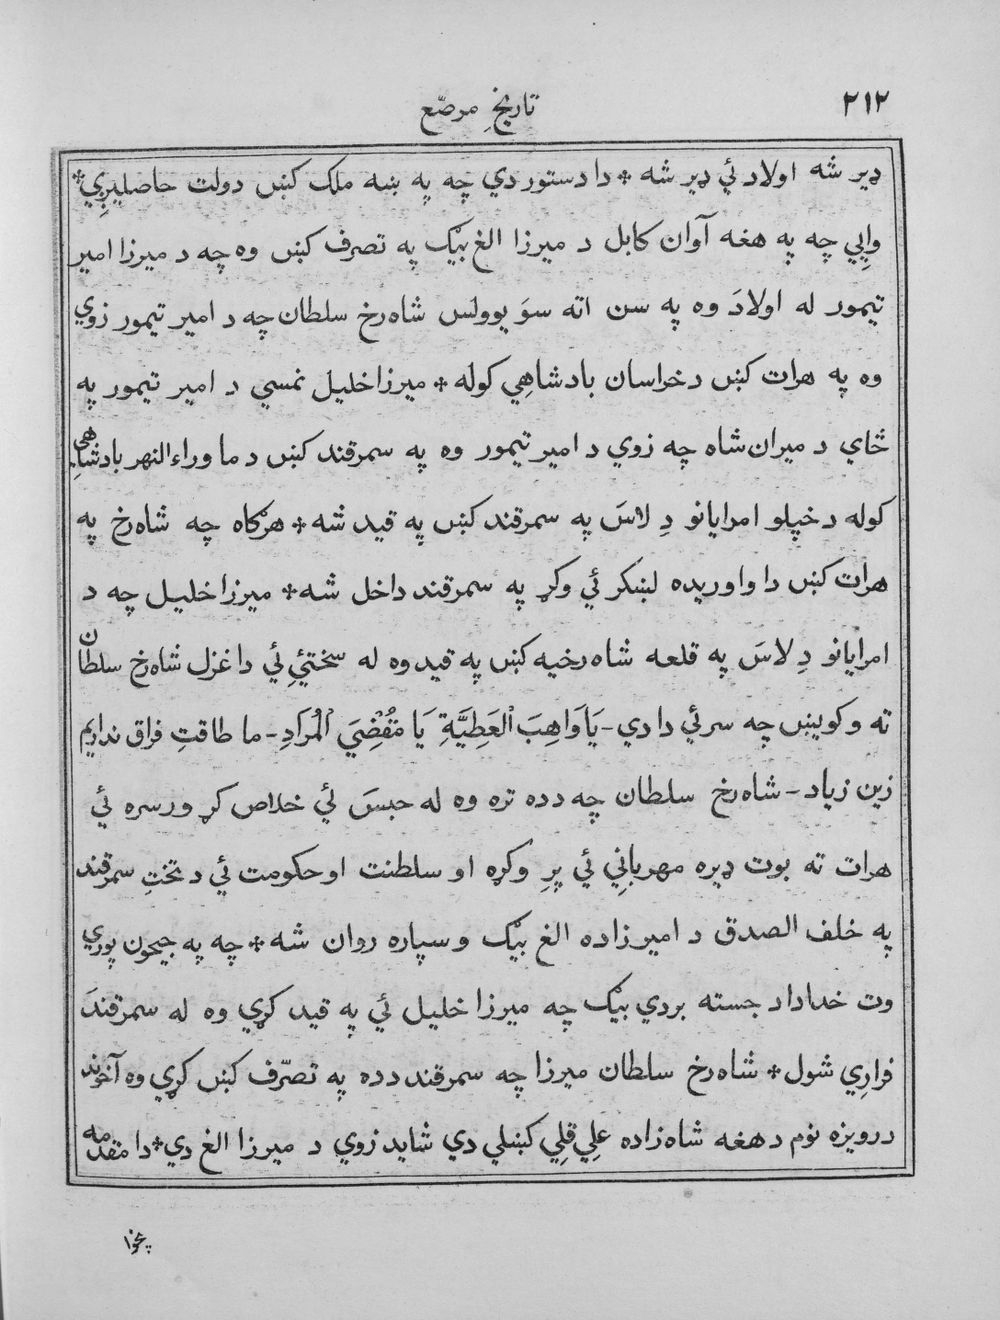 ٢١٢
تاریخِ مرصّع
ډیر شه اولاد ئي ډیر شه * دا دستور دي چه په ښه ملک کښں دولت حاصلیږِي *
وایِي چه په هغه آوان کابل د میرزا الغ بیګ په تصرف کښں وه چه د میرزا امیر
تیمور له اولادَ وه په سن اته سوَ یوولس شاه رخ سلطان چه د امیر تیمور زوي
وه په هرات کښں د خراسان بادشاهِي کوله * میرزا خلیل نمسي د امیر تیمور په
ځاي د میران شاه چه زوي د امیر تیمور وه په سمرقند کښں د ما وراء النهر بادشاهِي
کوله د خپلو امرایانو دِ لاسَ په سمرقند کښں په قید شه * هرکاه چه شاه رخ په
هرات کښں دا واوریده لښکر ئي وکړ په سمرقند داخل شه * میرزا خلیل چه د
امرایانو دِ لاسَ په قلعه شاه رخیه کښں په قید وه له سختئيِ ئي دا غزل شاه رخ سلطان
ته وکویښں چه سر ئي دا دي - یَا وَاهِبَ ٱلعَطِیَّةِ یَا مُقْضِيَ ٱلْمُرَادِ - ما طاقتِ فراق نداریم
زین زیاد - شاه رخ سلطان چه د ده تره وه له حبسَ ئي خلاص کړ ورسره ئي
هرات ته بوت ډیره مهربانِي ئي پرِ وکړه او سلطنت او حکومت ئي د تختِ سمرقند
په خلف الصدق د امیرزاده الغ بیګ وسپاره روان شه * چه په جیحون پورِي
وت خداداد جسته بردي بیګ چه میرزا خلیل ئي په قید کړي وه له سمرقندَ
فرارِي شول * شاه رخ سلطان میرزا چه سمرقند د ده په تصرّف کښں کړي وه آخوند
درویزه نوم د هغه شاه زاده علِي قلِي کښلي دي شاید زوي د میرزا الغ دي * دا مقدمه
پخوا